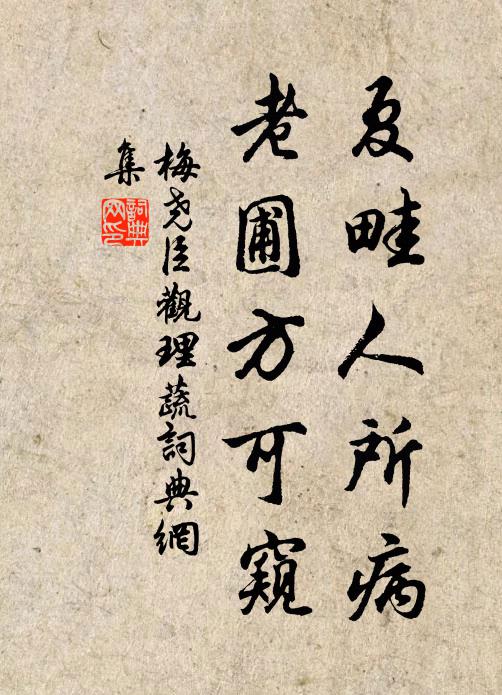 夏畦人所病
老圃方可窺
梅尧臣觀理蔬詞典網
集
詞典網印